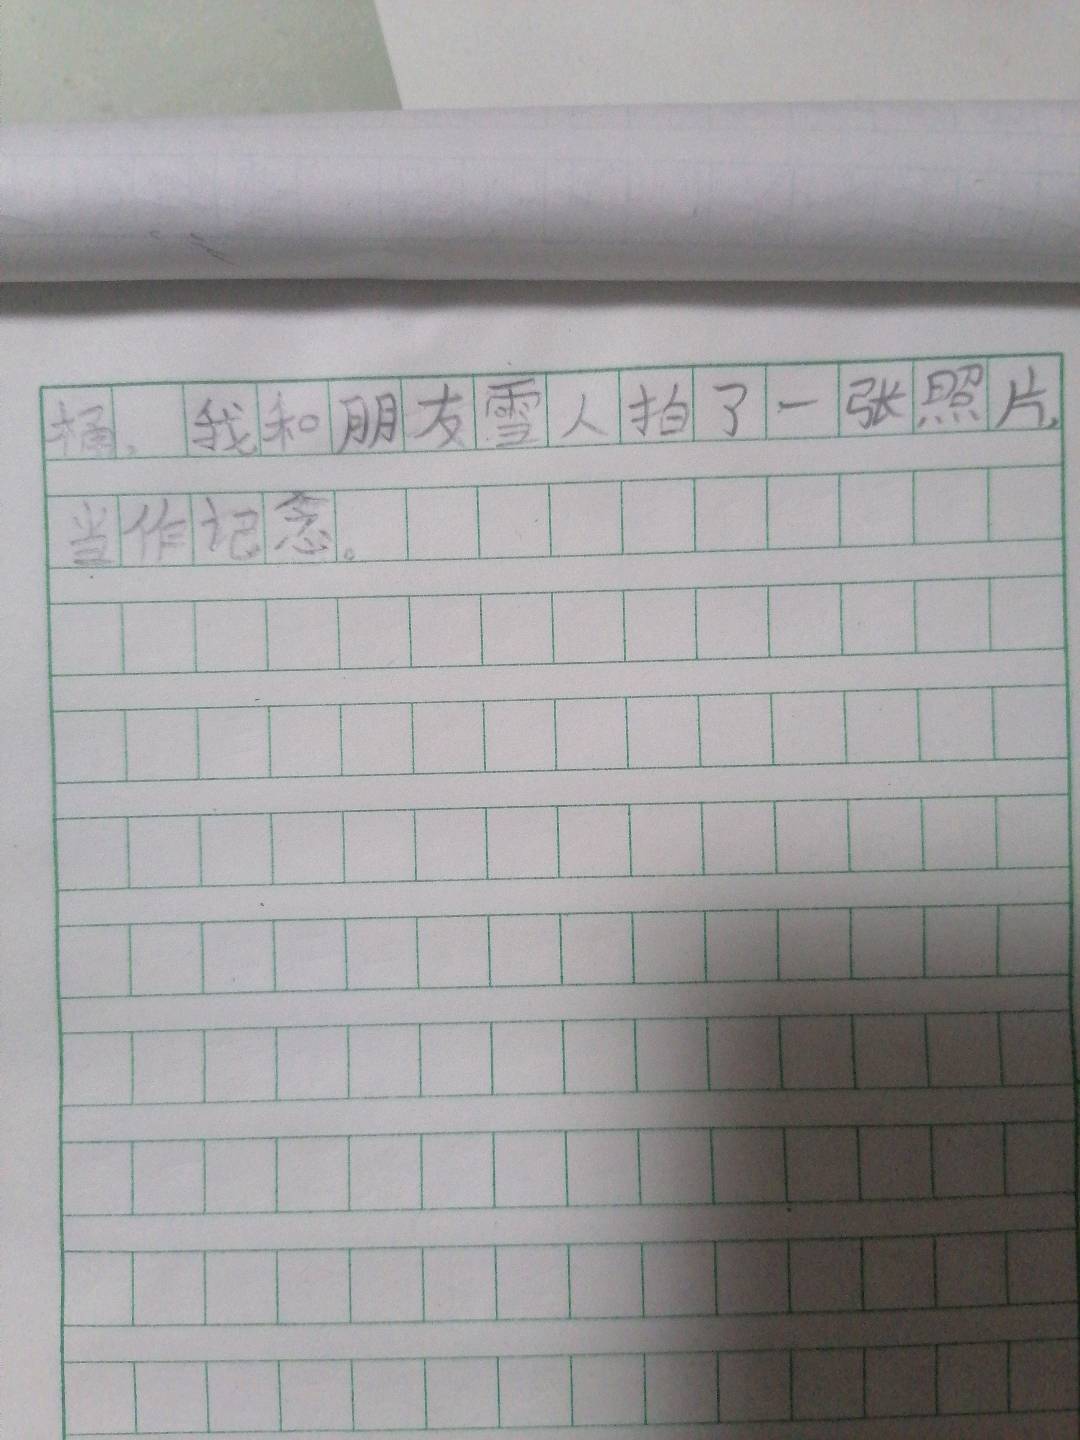 桶，我和朋友雪人拍了一张照片，
当作记念。